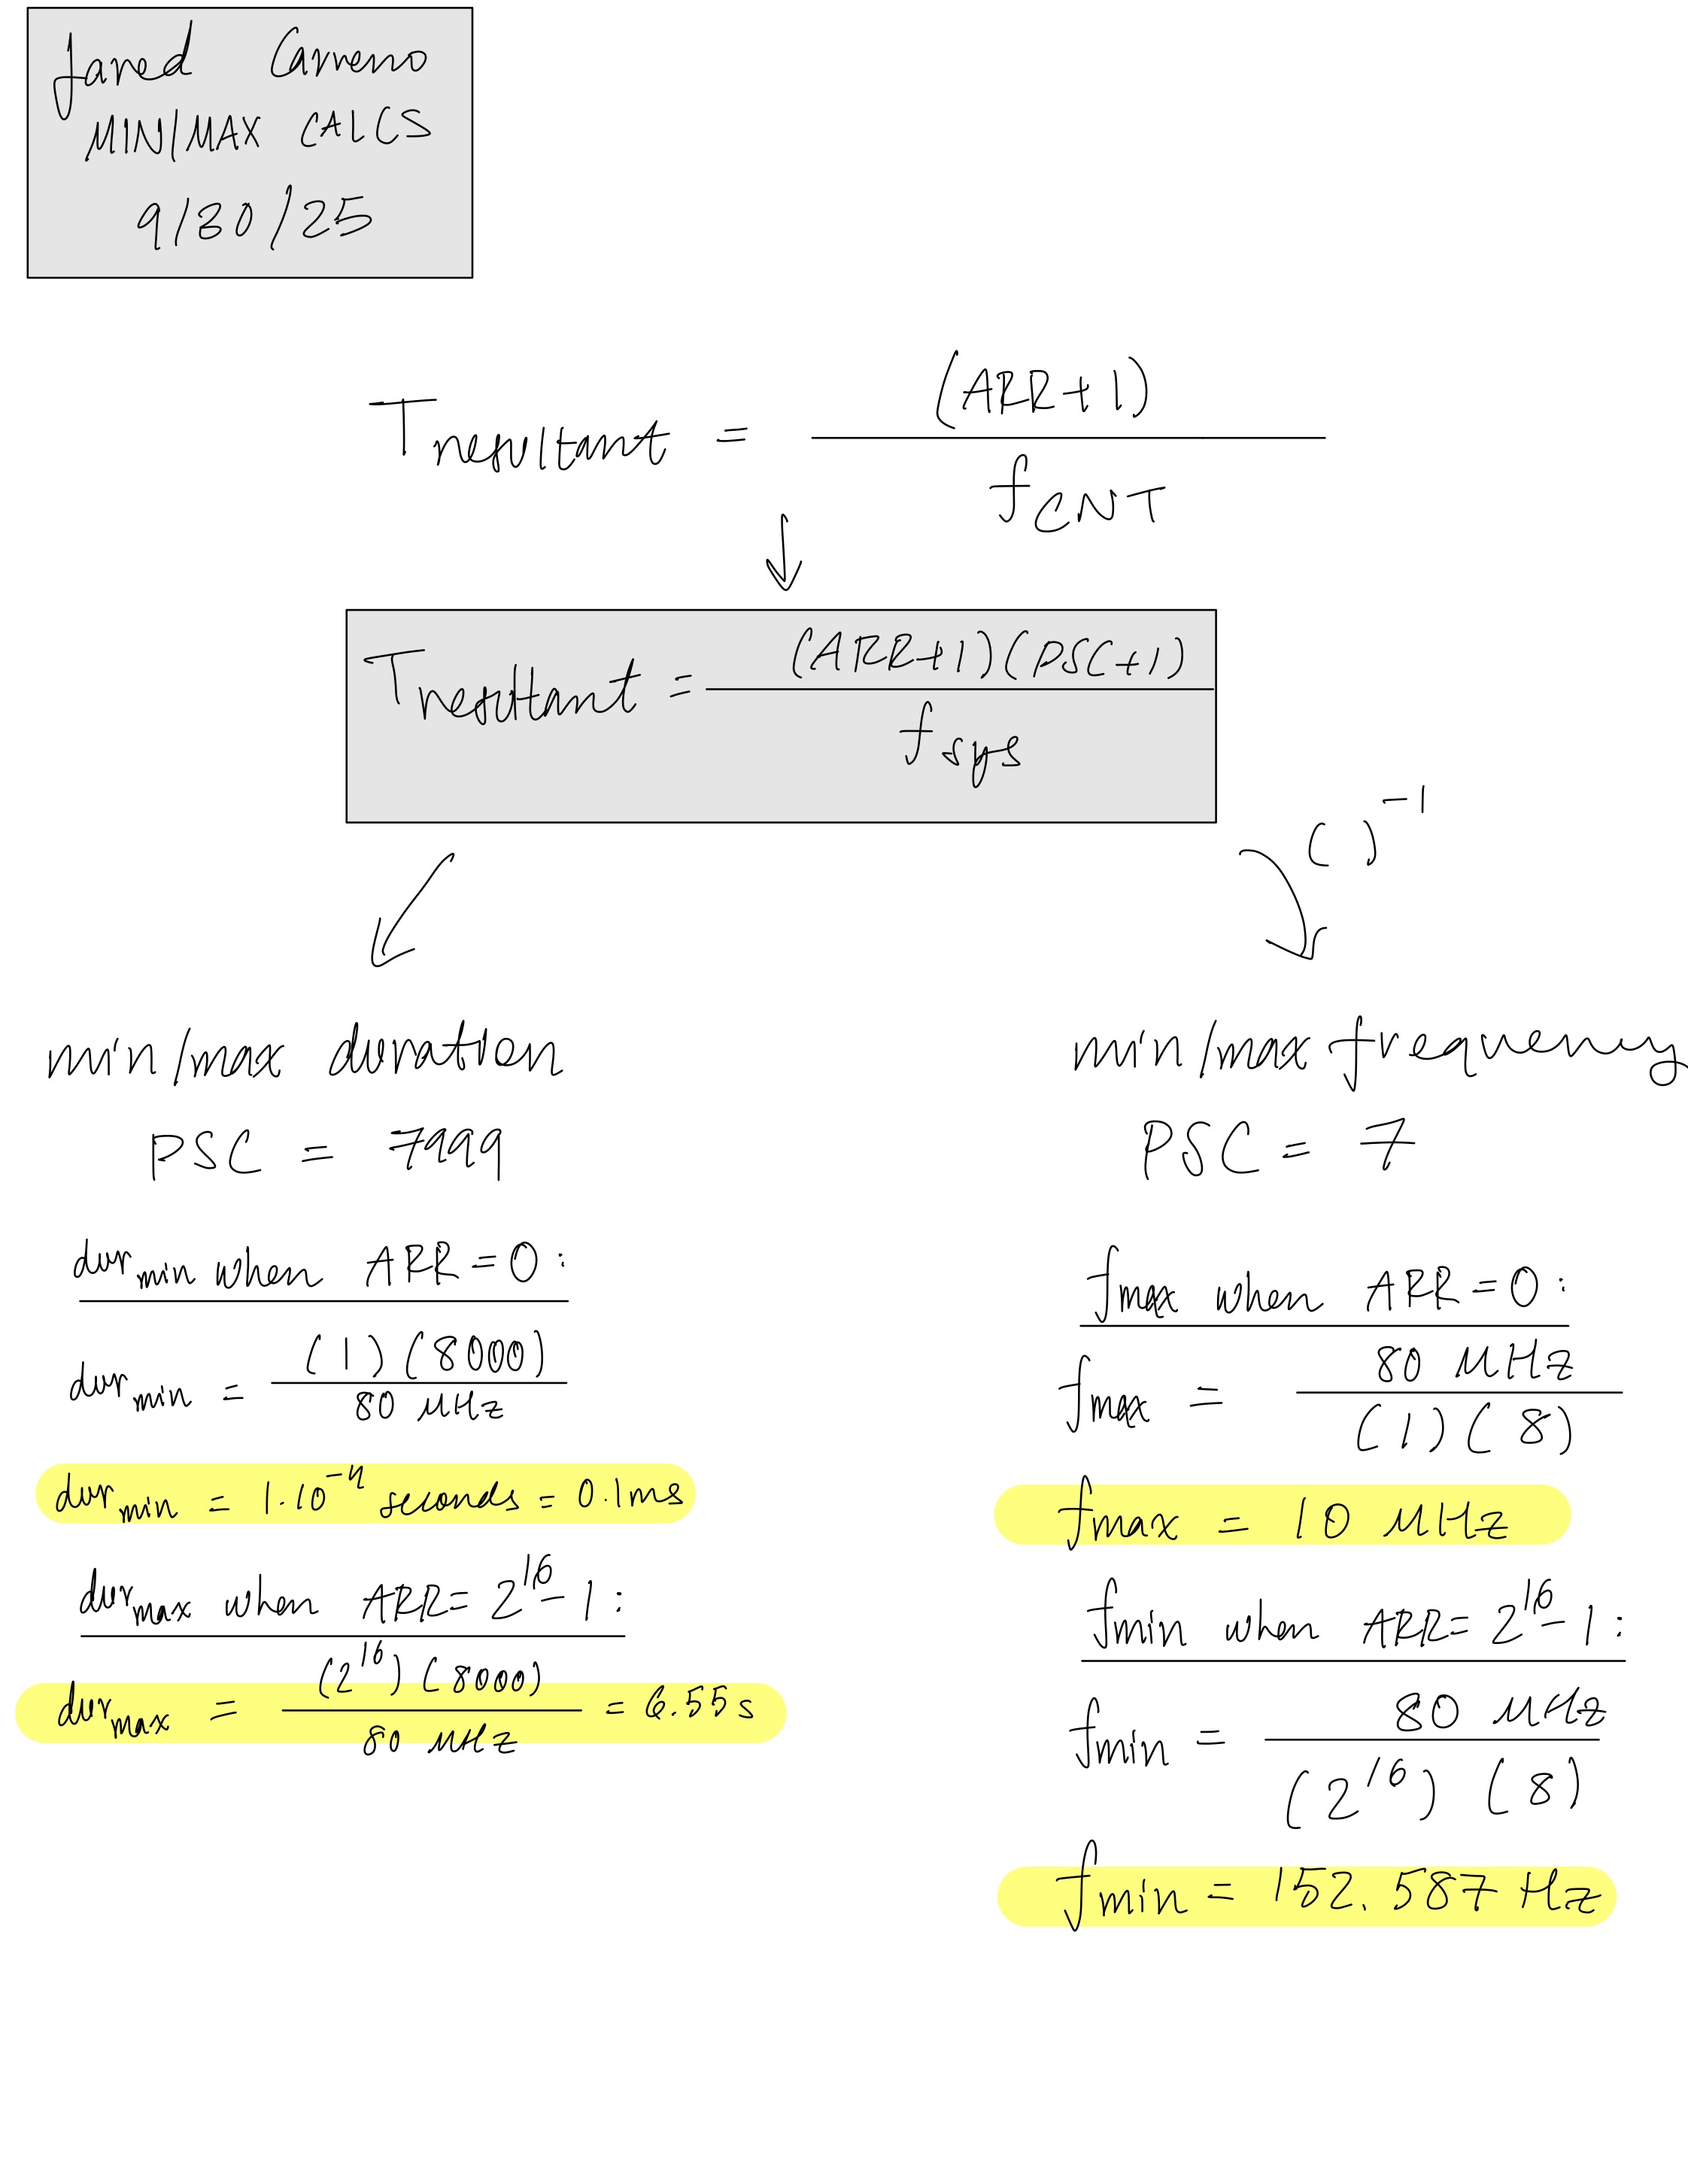 Jared Carreno
MIN/MAX CALCS
9/30/25
T_resultant = (ARR+1) / f_CNT
↓
T_resultant = (ARR+1)(PSC+1) / f_sys
( )^-1
min/max duration
PSC = 7999
dur_min when ARR=0:
dur_min = (1)(8000) / 80 MHz
dur_min = 1·10^-4 seconds = 0.1ms
dur_max when ARR=2^16-1:
dur_max = (2^16)(8000) / 80 MHz = 6.55s
min/max frequency
PSC = 7
f_max when ARR=0:
f_max = 80 MHz / (1)(8)
f_max = 10 MHz
f_min when ARR=2^16-1:
f_min = 80 MHz / (2^16)(8)
f_min = 152.587 Hz